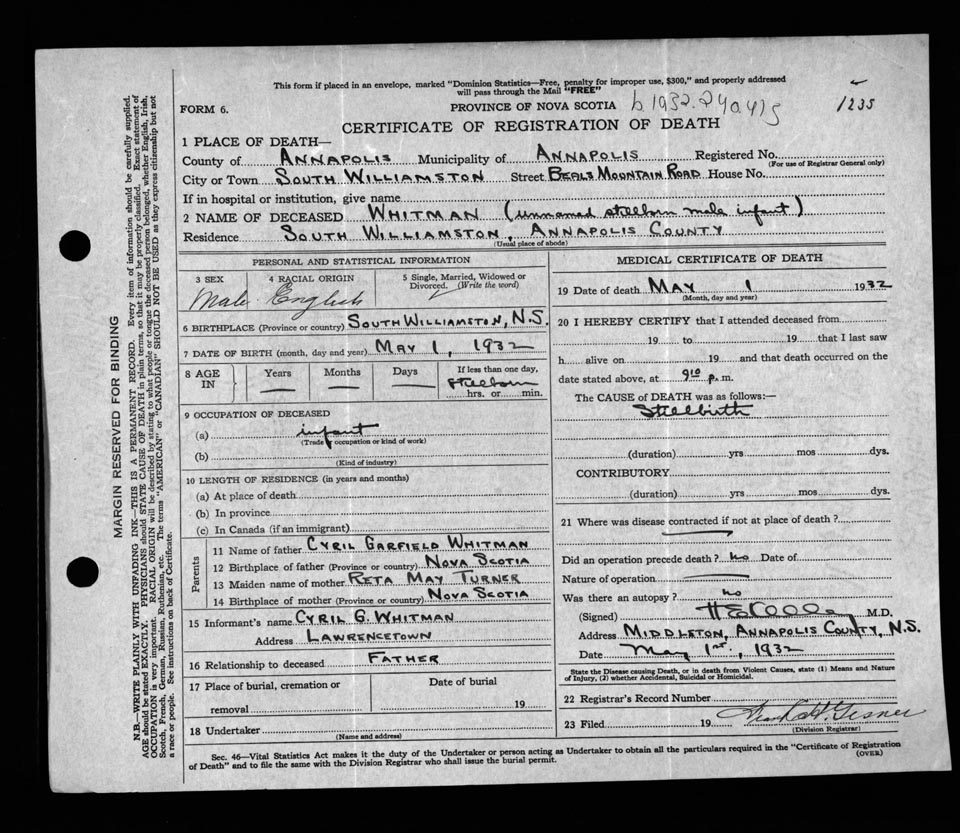 This form if placed in an envelope, marked "Dominion Statistics—Free, penalty for improper use, $300," and properly addressed
will pass through the Mail "FREE"
FORM 6.
PROVINCE OF NOVA SCOTIA
1235
CERTIFICATE OF REGISTRATION OF DEATH
1 PLACE OF DEATH—
County of ANNAPOLIS Municipality of ANNAPOLIS Registered No.
(For use of Registrar General only)
City or Town SOUTH WILLIAMSTON Street BEALS MOUNTAIN ROAD House No.
If in hospital or institution, give name
2 NAME OF DECEASED WHITMAN (unnamed stillborn male infant)
Residence SOUTH WILLIAMSTON, ANNAPOLIS COUNTY
(Usual place of abode)
PERSONAL AND STATISTICAL INFORMATION
3 SEX 4 RACIAL ORIGIN 5 Single, Married, Widowed or
Divorced. (Write the word)
Male English
6 BIRTHPLACE (Province or country) SOUTH WILLIAMSTON, N.S.
7 DATE OF BIRTH (month, day and year) MAY 1, 1932
8 AGE IN Years Months Days If less than one day,
stillborn
hrs. or min.
9 OCCUPATION OF DECEASED
(a) infant
(Trade, occupation or kind of work)
(b)
(Kind of industry)
10 LENGTH OF RESIDENCE (in years and months)
(a) At place of death
(b) In province
(c) In Canada (if an immigrant)
Parents
11 Name of father CYRIL GARFIELD WHITMAN
12 Birthplace of father (Province or country) NOVA SCOTIA
13 Maiden name of mother RETA MAY TURNER
14 Birthplace of mother (Province or country) NOVA SCOTIA
15 Informant's name CYRIL G. WHITMAN
Address LAWRENCETOWN
16 Relationship to deceased FATHER
17 Place of burial, cremation or Date of burial
removal 19
18 Undertaker
(Name and address)
MEDICAL CERTIFICATE OF DEATH
19 Date of death MAY 1 1932
(Month, day and year)
20 I HEREBY CERTIFY that I attended deceased from
19 to 19 that I last saw
h alive on 19 and that death occurred on
date stated above, at 9 10 p. m.
The CAUSE of DEATH was as follows:—
Stillbirth
(duration) yrs mos dys.
CONTRIBUTORY
(duration) yrs mos dys.
21 Where was disease contracted if not at place of death?
Did an operation precede death? no Date of
Nature of operation
Was there an autopsy? no
(Signed) M.D.
Address MIDDLETON, ANNAPOLIS COUNTY, N.S.
Date May 1st, 1932
State the Disease causing Death, or in death from Violent Causes, state (1) Means and Nature
of Injury, (2) whether Accidental, Suicidal or Homicidal.
22 Registrar's Record Number
23 Filed 19
(Division Registrar)
Sec. 46—Vital Statistics Act makes it the duty of the Undertaker or person acting as Undertaker to obtain all the particulars required in the "Certificate of Registration
of Death" and to file the same with the Division Registrar who shall issue the burial permit.
(OVER)
MARGIN RESERVED FOR BINDING
N.B.—WRITE PLAINLY WITH UNFADING INK—THIS IS A PERMANENT RECORD. Every item of information should be carefully supplied.
AGE should be stated EXACTLY. PHYSICIANS should STATE CAUSE OF DEATH in plain terms, so that it may be properly classified. Exact statement of
OCCUPATION is very important. RACIAL ORIGIN will be described by stating to what people or tongue the deceased person belonged, whether English, Irish,
Scotch, French, German, Russian, Ruthenian, etc. The terms "AMERICAN" or "CANADIAN" SHOULD NOT BE USED as they express citizenship but not
a race or people. See instructions on back of Certificate.